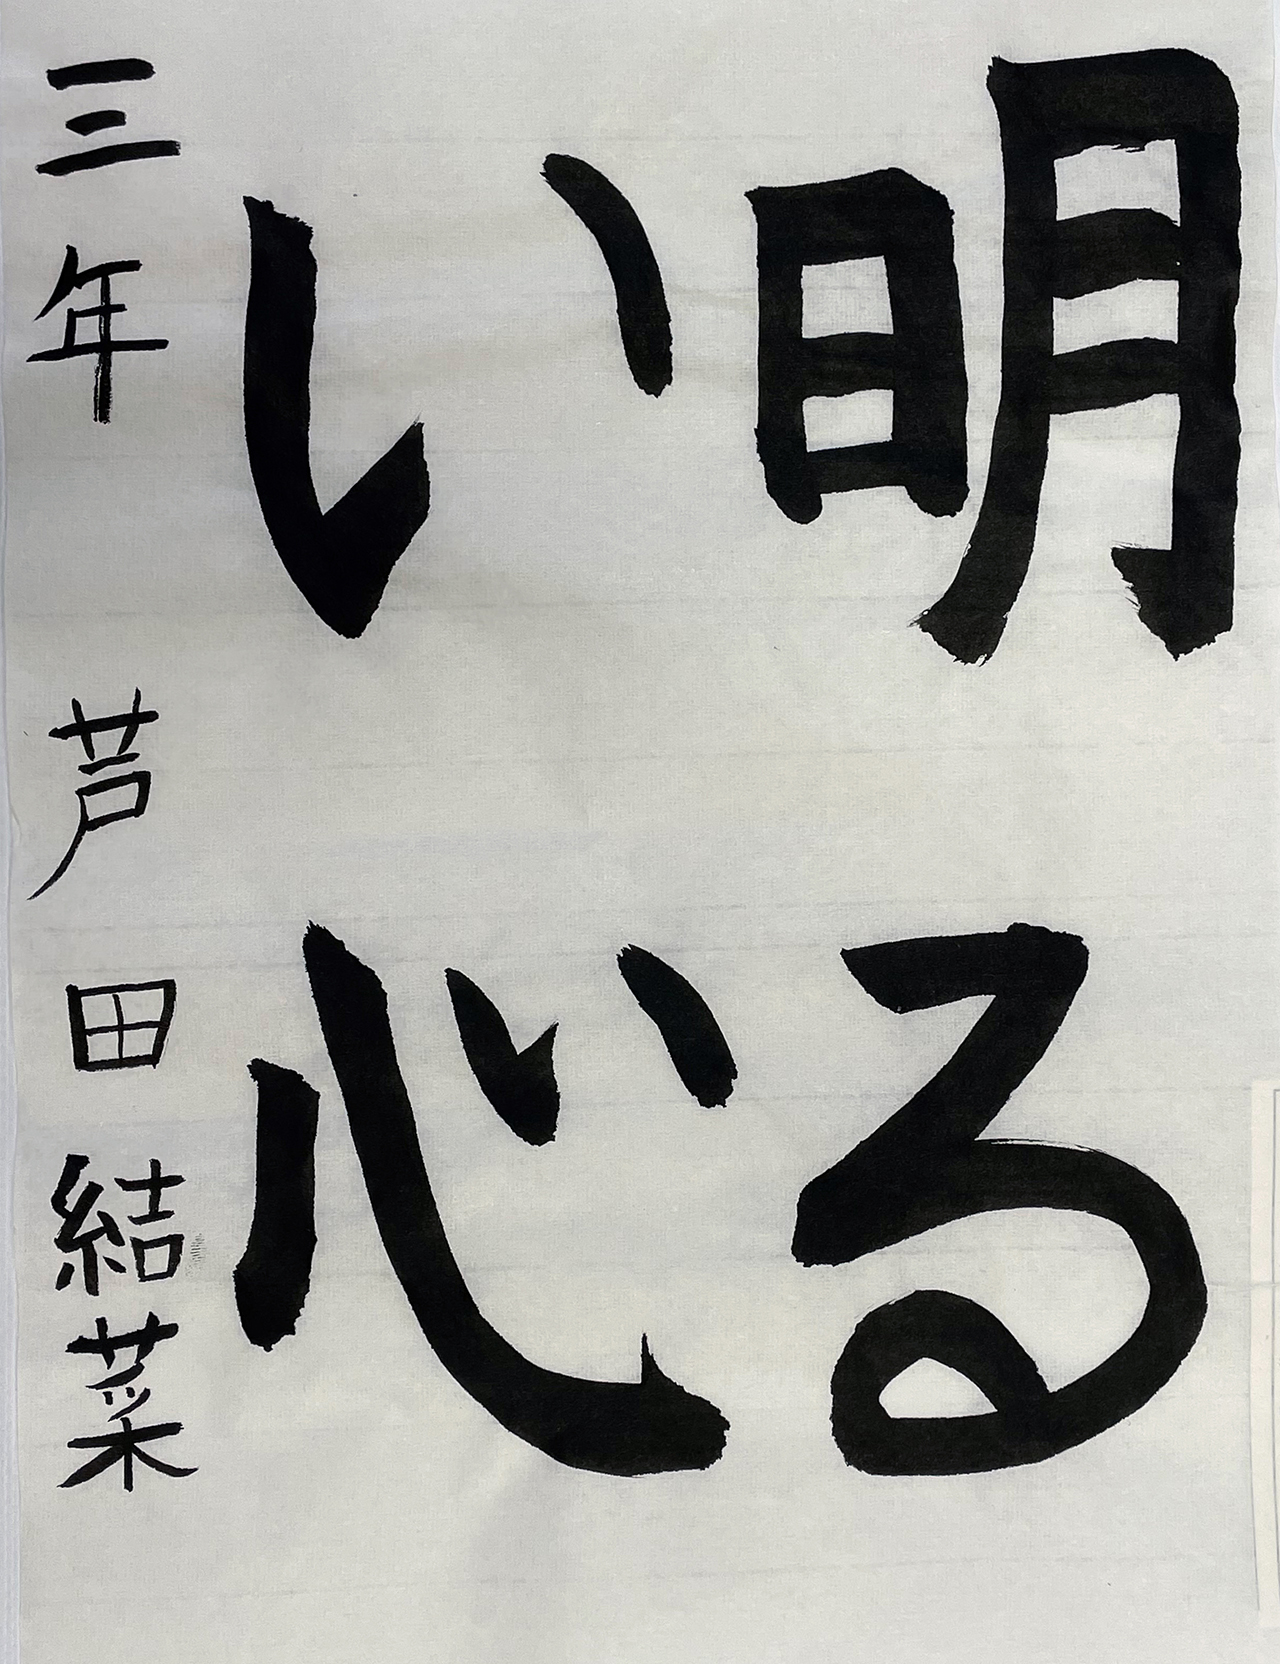 明る
い心
三年 芦田結菜